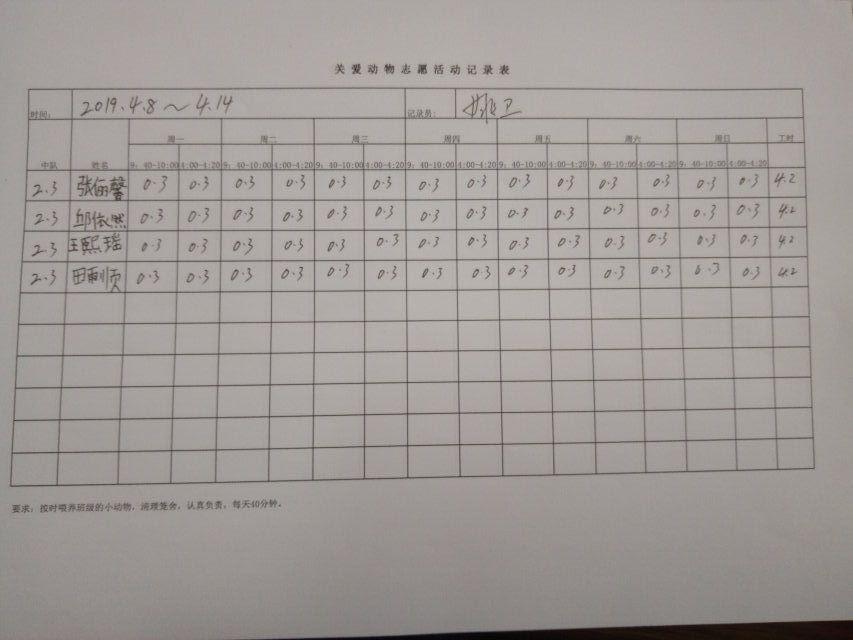 关爱动物志愿活动记录表
时间: 2019.4.8～4.14 记录员:
周一 周二 周三 周四 周五 周六 周日 工时
中队 姓名 9：40-10:00 4:00-4:20 9：40-10:00 4:00-4:20 9：40-10:00 4:00-4:20 9：40-10:00 4:00-4:20 9：40-10:00 4:00-4:20 9：40-10:00 4:00-4:20 9：40-10:00 4:00-4:20
2.3 张俪馨 0.3 0.3 0.3 0.3 0.3 0.3 0.3 0.3 0.3 0.3 0.3 0.3 0.3 0.3 4.2
2.3 邱依然 0.3 0.3 0.3 0.3 0.3 0.3 0.3 0.3 0.3 0.3 0.3 0.3 0.3 0.3 4.2
2.3 王熙瑶 0.3 0.3 0.3 0.3 0.3 0.3 0.3 0.3 0.3 0.3 0.3 0.3 0.3 0.3 4.2
2.3 0.3 0.3 0.3 0.3 0.3 0.3 0.3 0.3 0.3 0.3 0.3 0.3 0.3 0.3 4.2
要求：按时喂养班级的小动物，清理笼舍，认真负责，每天40分钟。